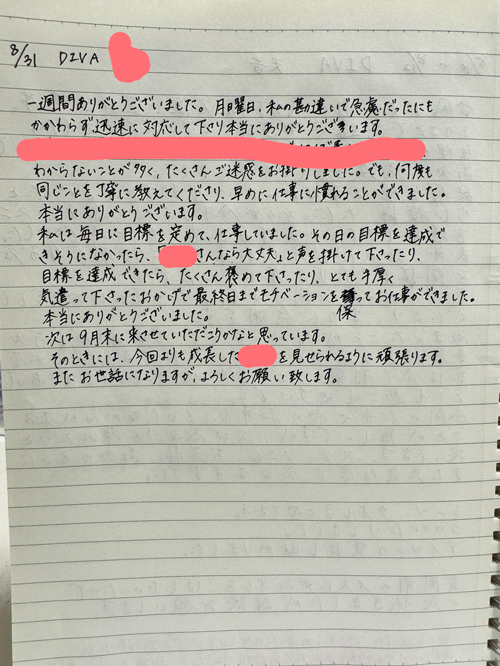 8/31 DIVA
一週間ありがとうございました。月曜日、私の勘違いで急遽だったにも
かかわらず迅速に対応して下さり本当にありがとうございます。
わからないことが多く、たくさんご迷惑をお掛けしました。でも、何度も
同じことを丁寧に教えてくださり、早めに仕事に慣れることができました。
本当にありがとうございます。
私は毎日に目標を定めて、仕事していました。その日の目標を達成で
きそうになかったら、「さんなら大丈夫」と声を掛けて下さったり、
目標を達成できたら、たくさん褒めて下さったり、とても手厚く
気遣って下さったおかげで最終日までモチベーションを保ってお仕事ができました。
本当にありがとうございました。
次は9月末に来させていただこうかなと思っています。
そのときには、今回よりも成長したを見せられるように頑張ります。
またお世話になりますが、よろしくお願い致します。